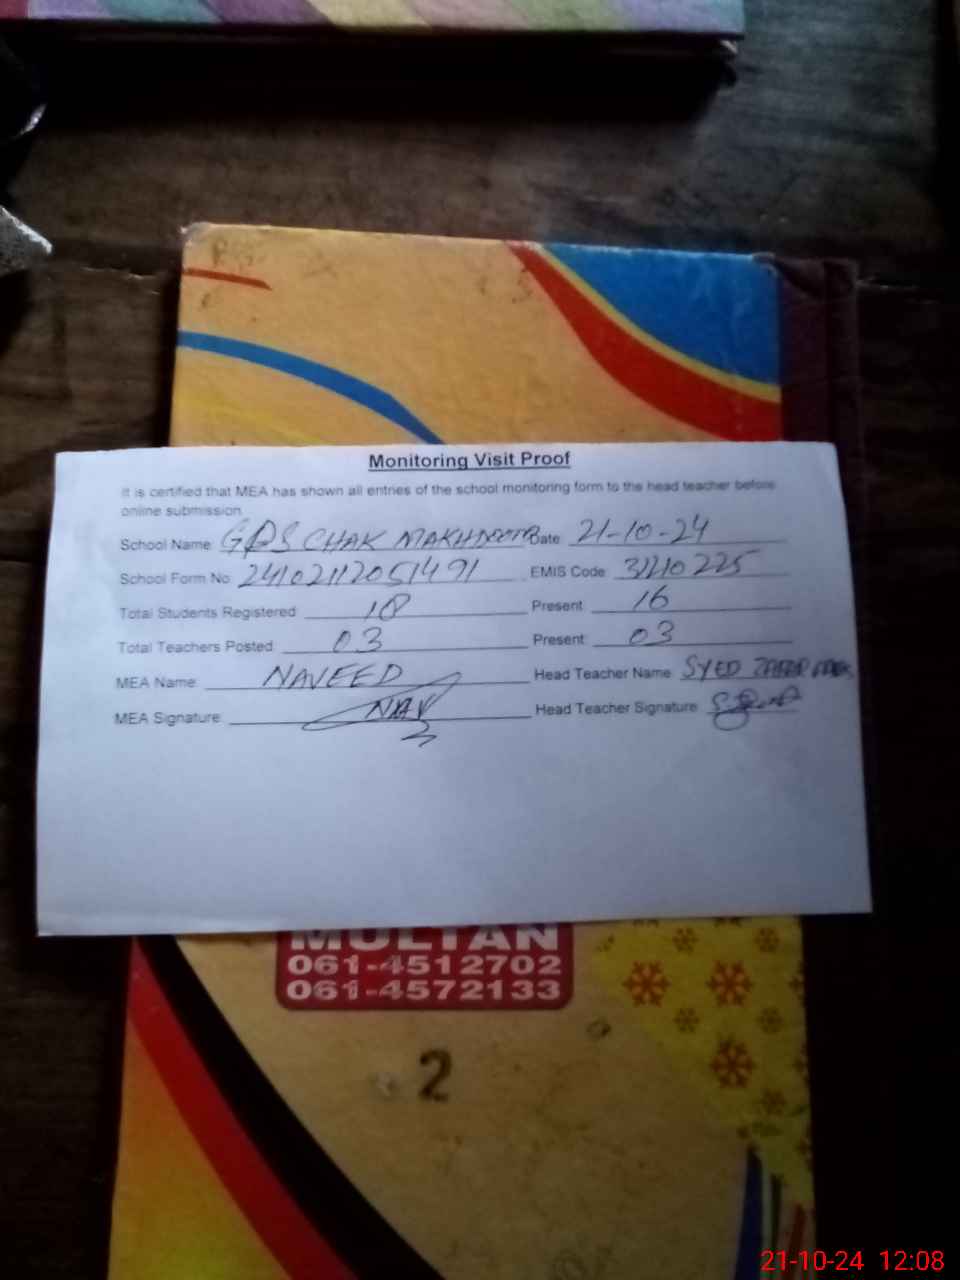 Monitoring Visit Proof
It is certified that MEA has shown all entries of the school monitoring form to the head teacher before
online submission
School Name: GPS CHAK Date: 21-10-24
School Form No: EMIS Code:
Total Students Registered: 18 Present: 16
Total Teachers Posted: 03 Present: 03
MEA Name: NAVEED Head Teacher Name: SYED
MEA Signature: Head Teacher Signature:
MULTAN
061-4512702
061-4572133
2
21-10-24 12:08